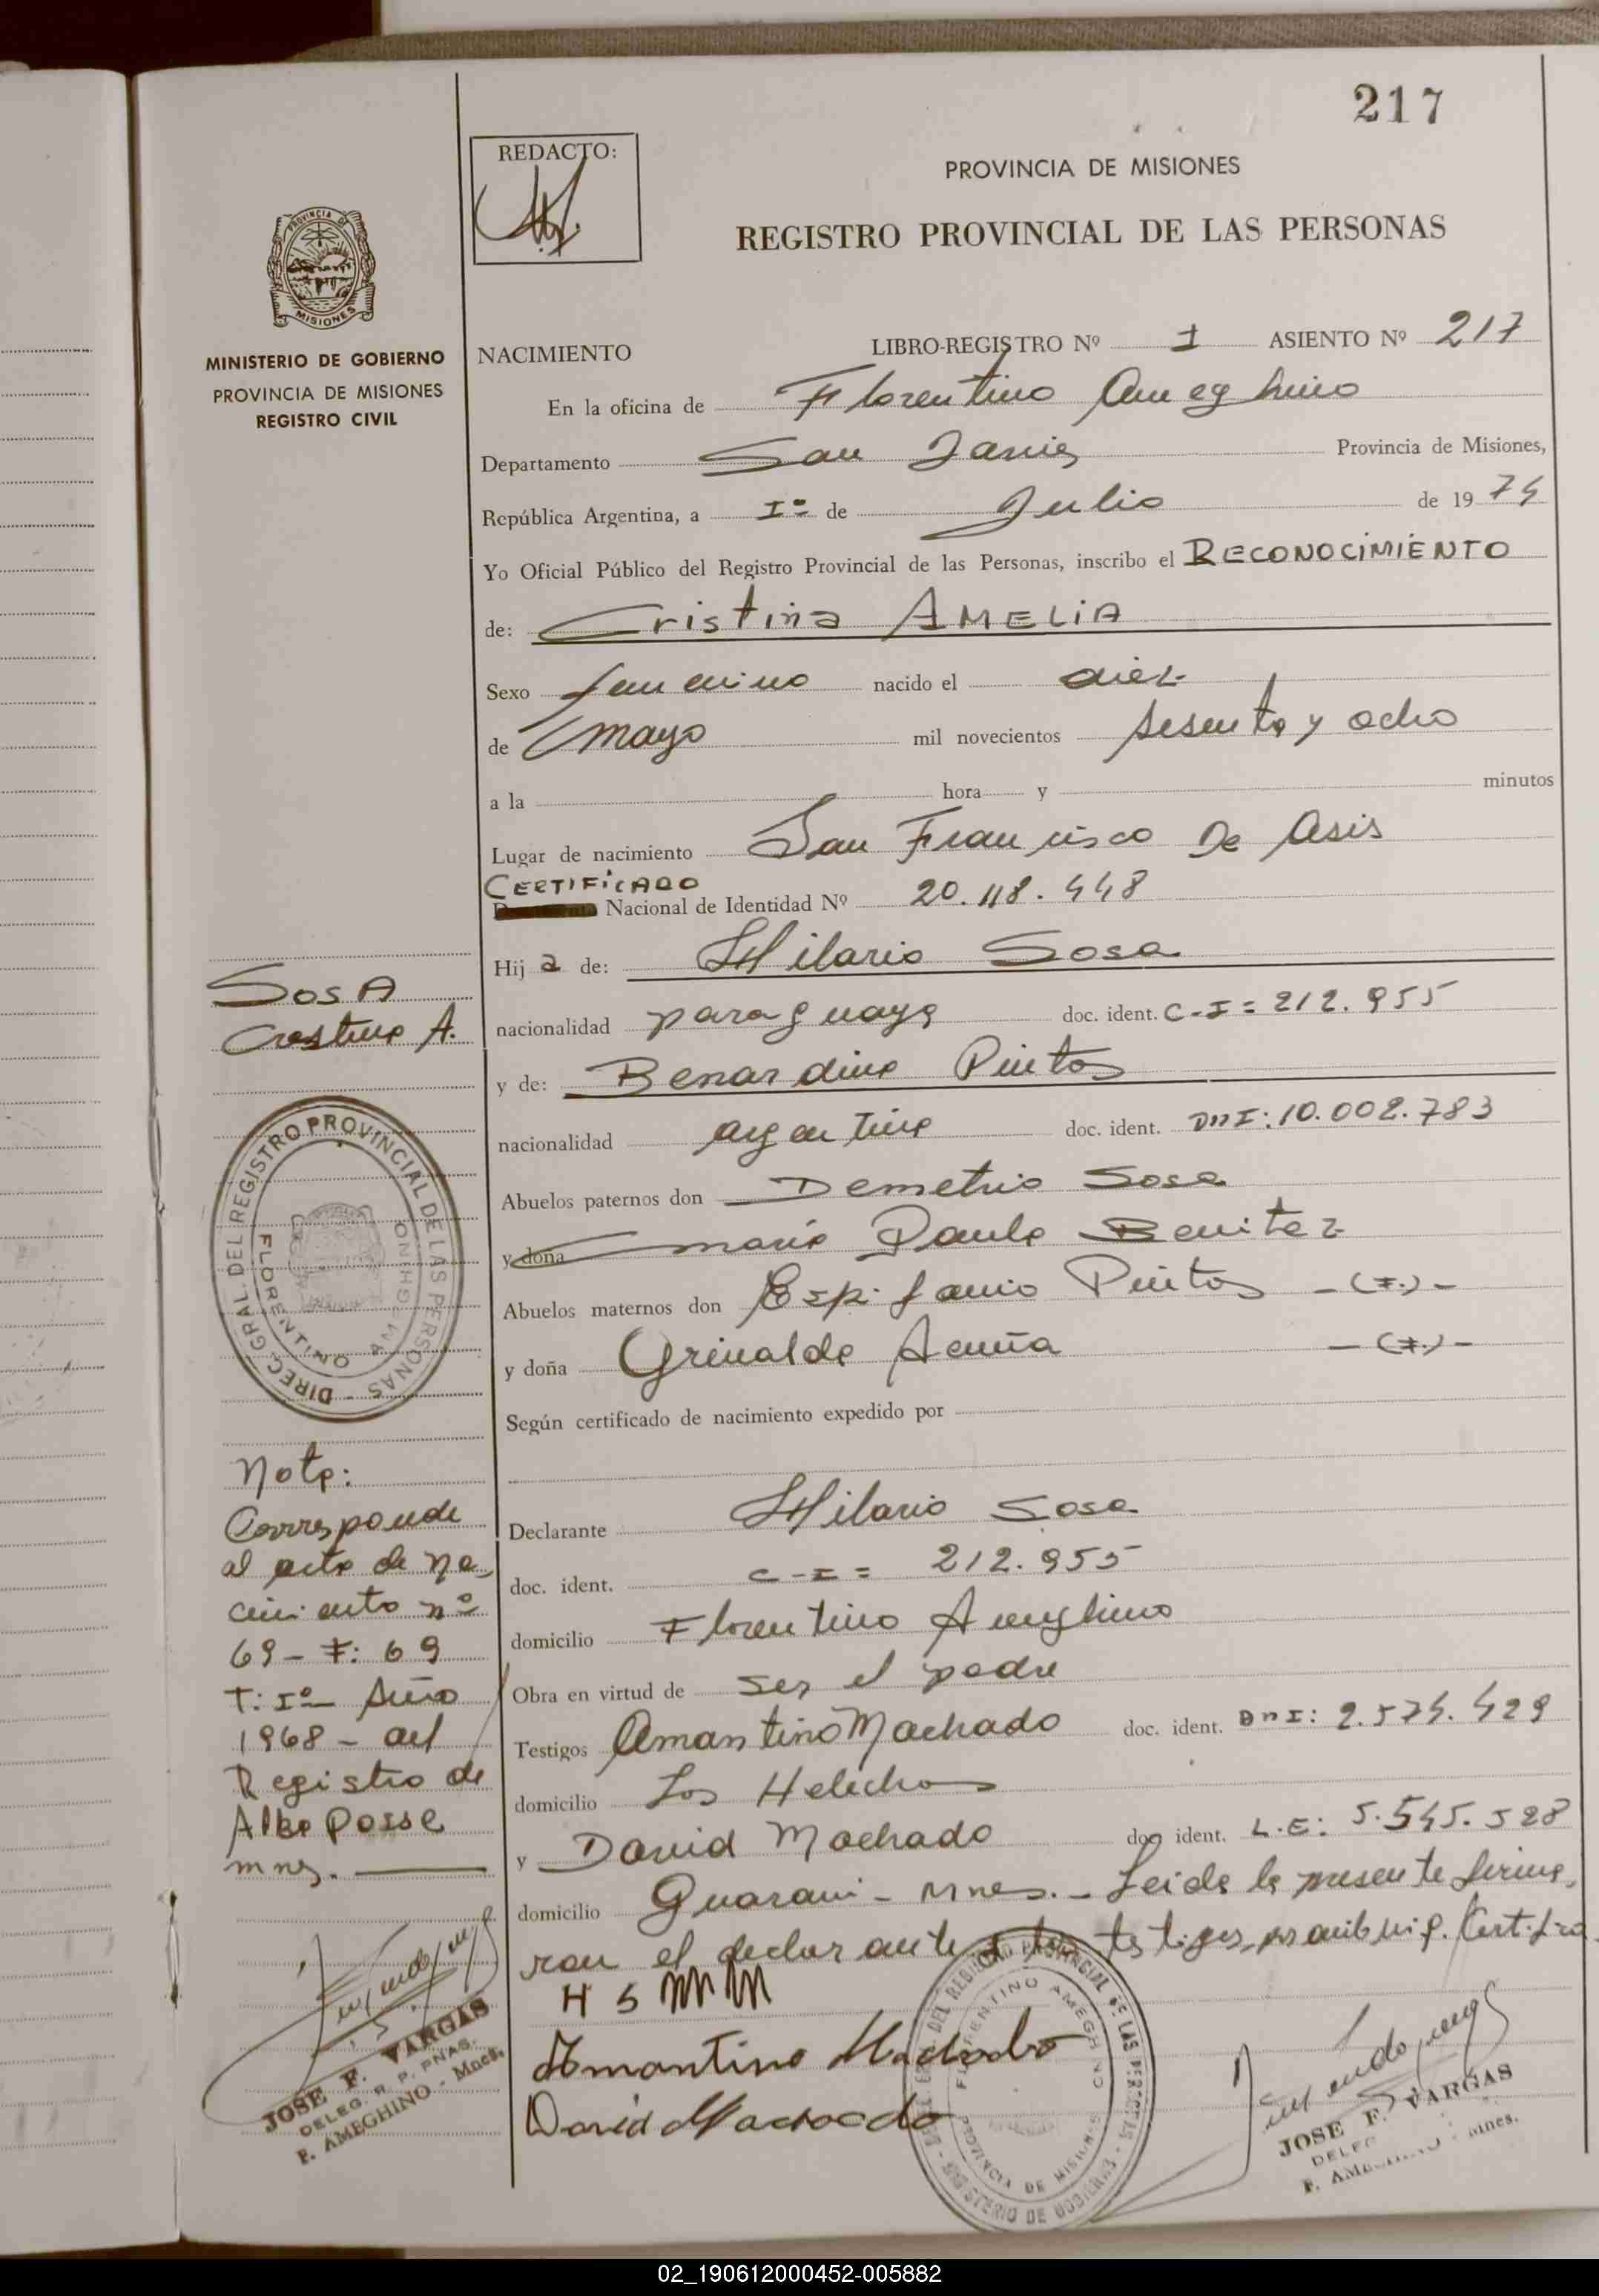 217
REDACTO:
PROVINCIA DE MISIONES
REGISTRO PROVINCIAL DE LAS PERSONAS
PROVINCIA DE
MISIONES
MINISTERIO DE GOBIERNO
PROVINCIA DE MISIONES
REGISTRO CIVIL
NACIMIENTO LIBRO-REGISTRO Nº 1 ASIENTO Nº 217
En la oficina de Florentino Ameghino
Departamento San Javier Provincia de Misiones,
República Argentina, a Iº de Julio de 1974
Yo Oficial Público del Registro Provincial de las Personas, inscribo el RECONOCIMIENTO
de: Cristina AMELIA
Sexo femenino nacido el diez
de mayo mil novecientos sesenta y ocho
a la hora y minutos
Lugar de nacimiento San Francisco De Asis
CERTIFICADO
Nacional de Identidad Nº 20.118.448
Hij a de: Hilario Sosa
nacionalidad paraguaya doc. ident. C-I= 212.955
y de: Benardina Pintos
nacionalidad argentina doc. ident. DNI: 10.002.783
Abuelos paternos don Demetrio Sosa
y doña maria Paula Benitez
Abuelos maternos don Epifanio Pintos -(F.)-
y doña Grinalda Acuña -(F.)-
Según certificado de nacimiento expedido por
Declarante Hilario Sosa
doc. ident. C-I= 212.955
domicilio Florentino Ameghino
Obra en virtud de ser el padre
Testigos Amantino Machado doc. ident. DNI: 2.574.429
domicilio Los Helechos
y David Machado doc ident. L.E: 5.545.528
domicilio Guarani - Mnes. - Leida la presente firma-
ron el declarante y los testigos Certifico
H S
Amantino Machado
David Machado
SOSA
Cristina A.
DIREC. GRAL. DEL REGISTRO PROVINCIAL DE LAS PERSONAS
FLORENTINO AMEGHINO
Nota:
Corresponde
al acta de na-
cimiento nº
69 - F: 69
T: Iº Año
1968 - del
Registro de
Alba Posse
mnes.
JOSE F. VARGAS
DELEG. R. P. PNAS.
F. AMEGHINO - Mnes.
DEL REGISTRO PROVINCIAL DE LAS PERSONAS
FLORENTINO AMEGHINO
PROVINCIA DE MISIONES
MINISTERIO DE GOBIERNO
JOSE F. VARGAS
DELEG
F. AME Mnes.
02_190612000452-005882